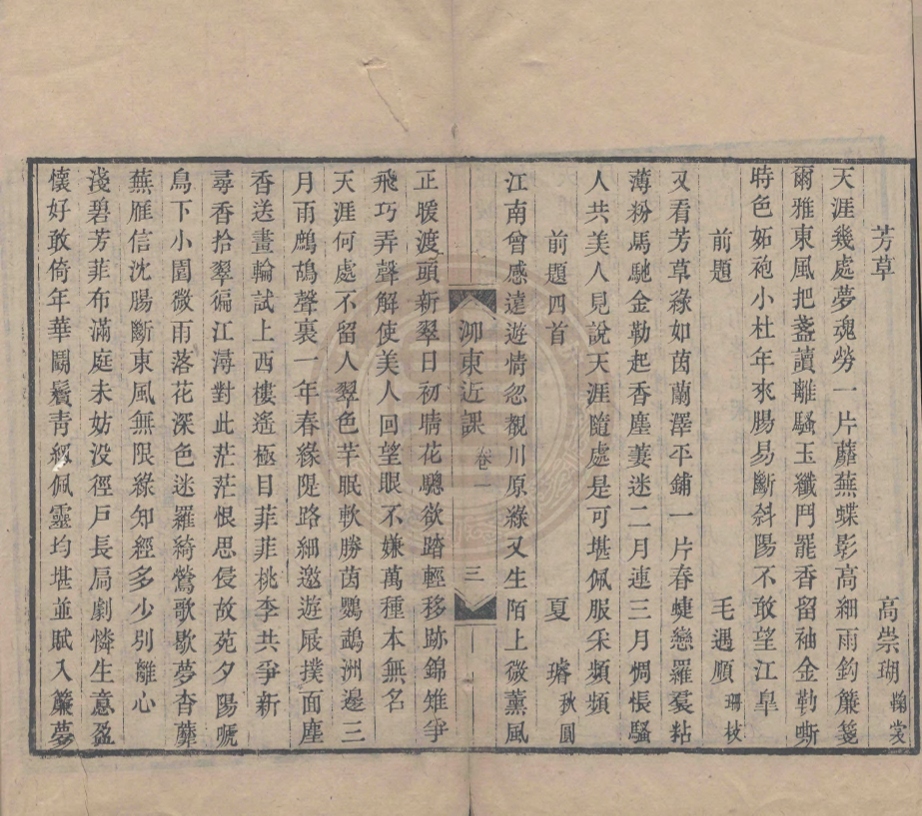 芳草　高崇瑚 䩞裳
天涯幾處夢魂勞一片蘼蕪蝶影高細雨鈎簾箋
爾雅東風把盞讀離騷玉纖鬥罷香留袖金勒嘶
時色妬袍小杜年來腸易斷斜陽不敢望江皋
前題　毛遇順 珊枝
又看芳草綠如茵蘭澤平鋪一片春蜨戀羅裙粘
薄粉馬馳金勒起香塵萋迷二月連三月惆悵騷
人共美人見說天涯隨處是可堪佩服采頻頻
前題四首　夏璿 秋圓
江南曾感遠遊情忽覩川原綠又生陌上微薰風
泖東近課 卷一 三
正暖渡頭新翠日初晴花驄欲踏輕移跡錦雉爭
飛巧弄聲解使美人回望眼不嫌萬種本無名
天涯何處不留人翠色芊眠軟勝茵鸚鵡洲邊三
月雨鷓鴣聲裏一年春綠隄路細邀遊屐撲面塵
香送畫輪試上西樓遙極目菲菲桃李共爭新
尋香拾翠徧江潯對此茫茫恨思侵故苑夕陽嘶
鳥下小園微雨落花深色迷羅綺鶯歌歇夢杳蘼
蕪雁信沈腸斷東風無限綠知經多少別離心
淺碧芳菲布滿庭未妨没徑戸長扃劇憐生意盈
懷好敢倚年華鬬鬢青紉佩靈均堪並賦入簾夢